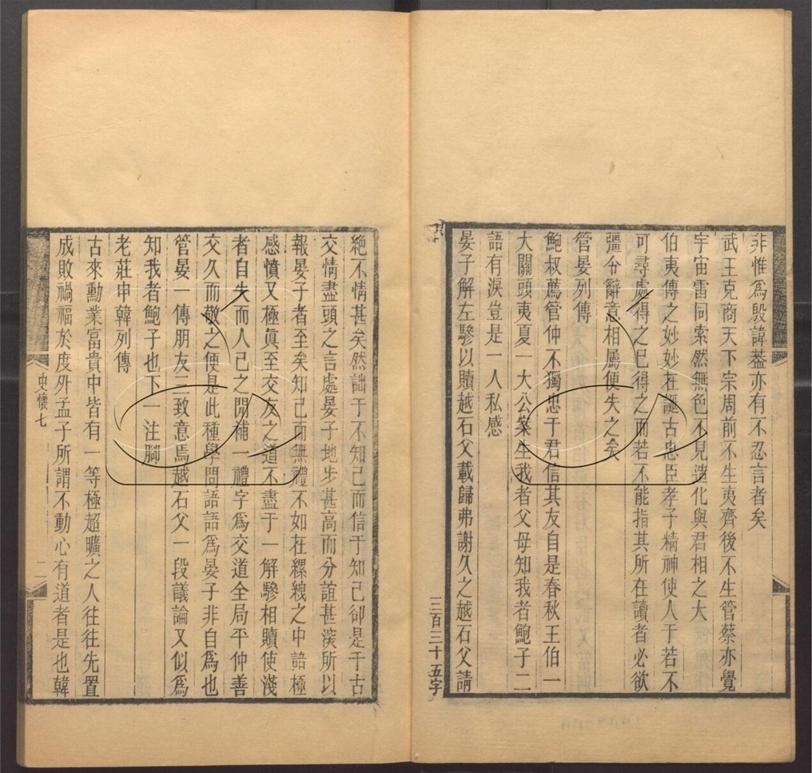 非惟爲殷諱葢亦有不忍言者矣
武王克商天下宗周前不生夷齊後不生管蔡亦覺
宇宙雷同索然無色不見造化與君相之大
伯夷傳之妙妙在誕古忠臣孝子精神使人于若不
可尋處得之巳得之而若不能指其所在讀者必欲
彊分辭意相屬便失之矣
管晏列傳
鮑叔薦管仲不獨忠于君信其友自是春秋王伯一
大關頭夷夏一大公案生我者父母知我者鮑子二
語有淚豈是一人私感
晏子解左驂以贖越石父載歸弗謝久之越石父請
三百三十五字
絶不情甚矣然詘于不知己而信于知己卻是千古
交情盡頭之言處晏子地步甚高而分誼甚深所以
報晏子者至矣知己而無禮不如在縲絏之中語極
感憤又極眞至交友之道不盡于一解驂相贖使淺
者自失而人己之閒補一禮字爲交道全局平仲善
交久而敬之便是此種學問語語爲晏子非自爲也
管晏一傳朋友三致意焉越石父一段議論又似爲
知我者鮑子也下一注腳
老莊申韓列傳
古來勳業富貴中皆有一等極超曠之人往往先置
成敗禍福於度外孟子所謂不動心有道者是也韓
史懷七
二